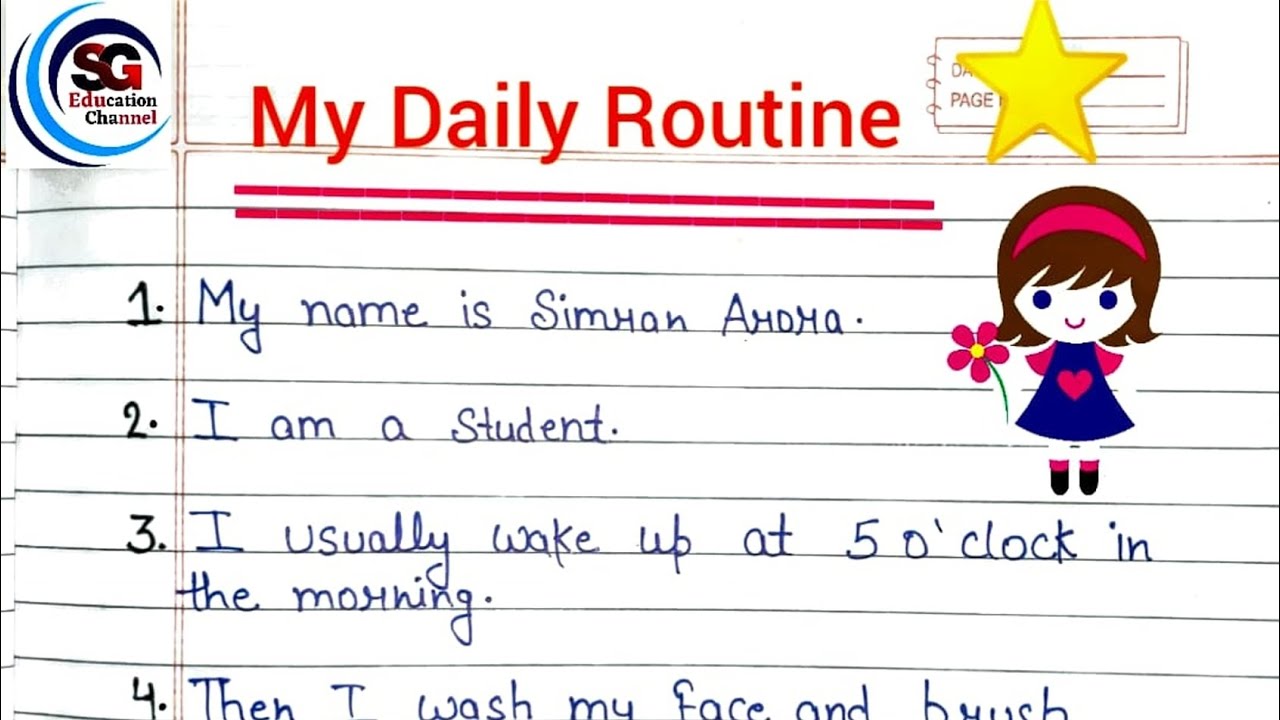 SG
Education
Channel
My Daily Routine
DA
PAGE
1. My name is Simran Arora.
2. I am a Student.
3. I usually wake up at 5 o'clock in
the morning.
4. Then I wash my face and brush